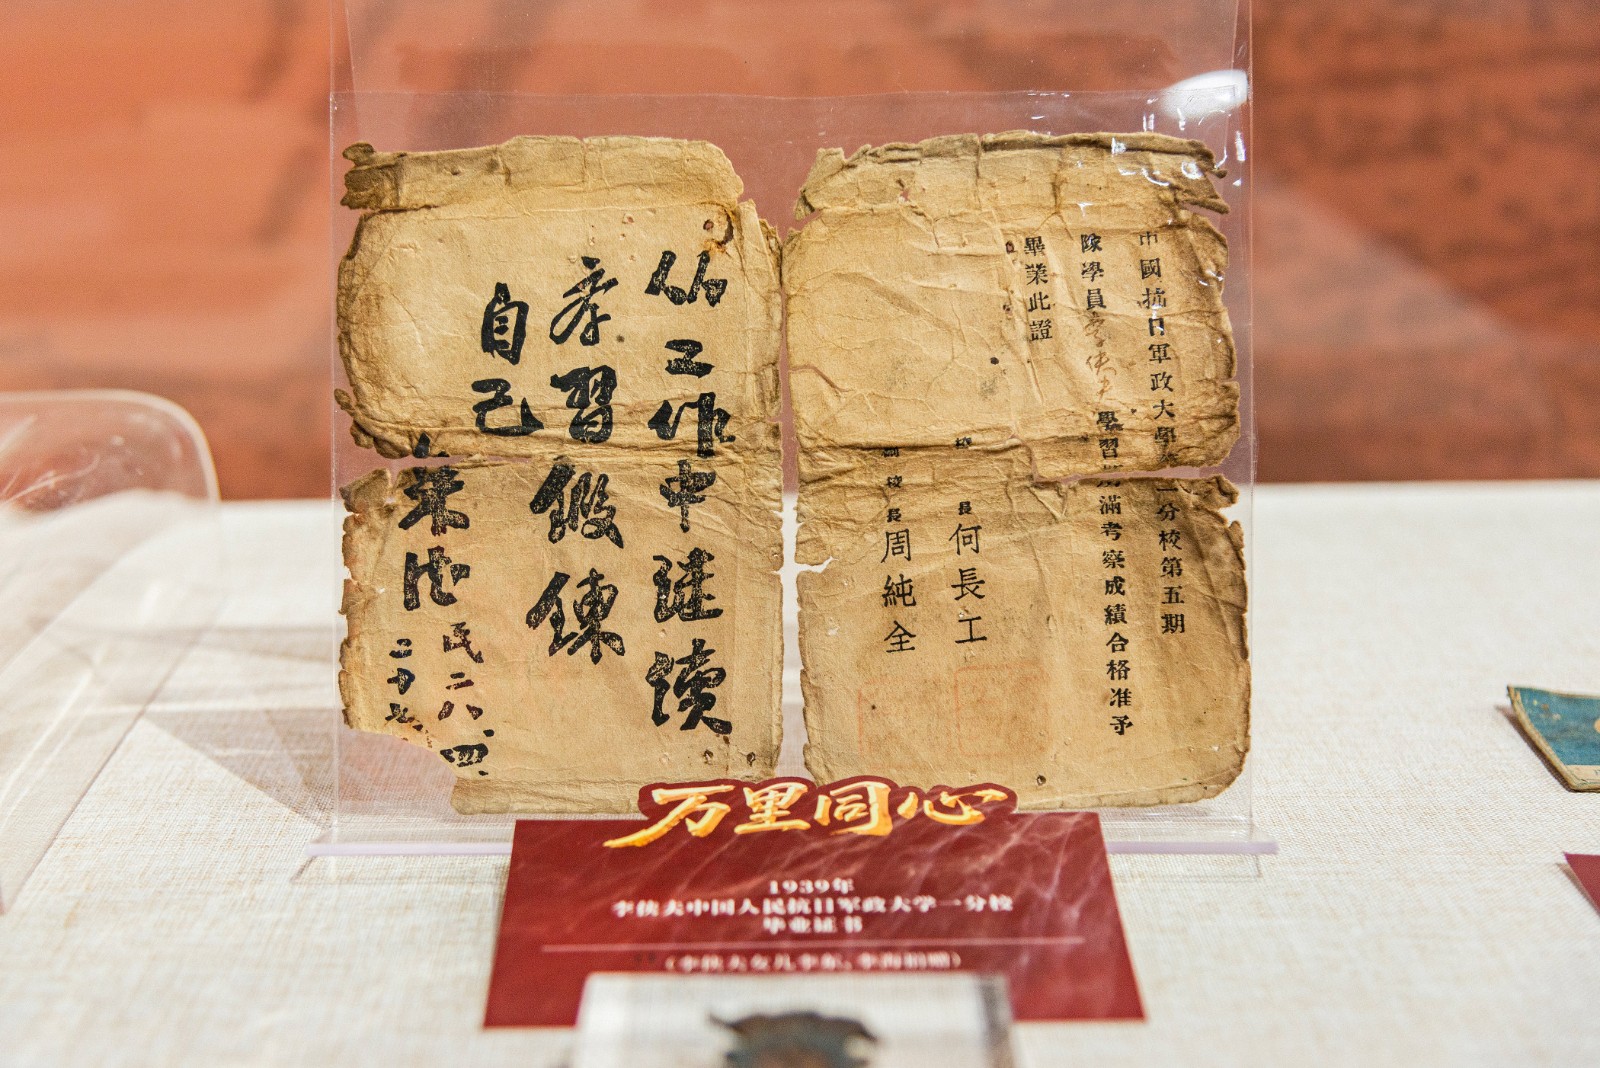 中國抗日軍政大學第一分校第五期
隊學員李俠夫學習期滿考察成績合格准予
畢業此證
校長何長工
副校長周純全
從工作中繼續
學習鍛鍊
自己
朱德
民二八、四、
二十七
万里同心
1939年
李侠夫中国人民抗日军政大学一分校
毕业证书
（李侠夫女儿李东、李海捐赠）